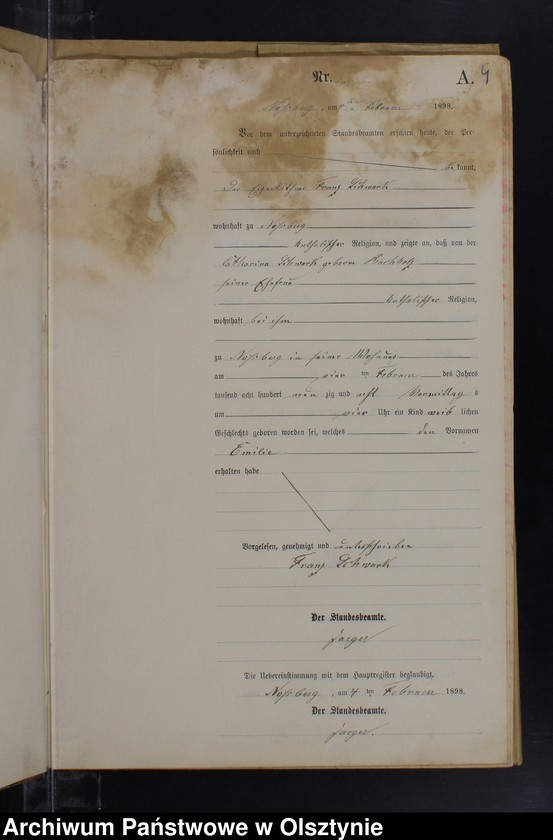 Nr. A. 4
Noßberg, am Februar 1898.
Vor dem unterzeichneten Standesbeamten erschien heute, der Per-
sönlichkeit nach
kannt,
Der Eigenkäthner Franz Schwark
wohnhaft zu Noßberg
katholischer Religion, und zeigte an, daß von der
Catharina Schwark geborn
seiner Ehefrau
katholischer Religion,
wohnhaft bei ihm
zu Noßberg in seiner Wohnung
am vier ten Februar des Jahres
tausend acht hundert neun zig und acht Vormittag s
um vier Uhr ein Kind weib lichen
Geschlechts geboren worden sei, welches den Vornamen
Emilie
erhalten habe
Vorgelesen, genehmigt und unterschrieben
Franz Schwark
Der Standesbeamte.
Jaeger
Die Uebereinstimmung mit dem Hauptregister beglaubigt,
Noßberg, am 4 ten Februar 1898.
Der Standesbeamte.
Jaeger.
Archiwum Państwowe w Olsztynie